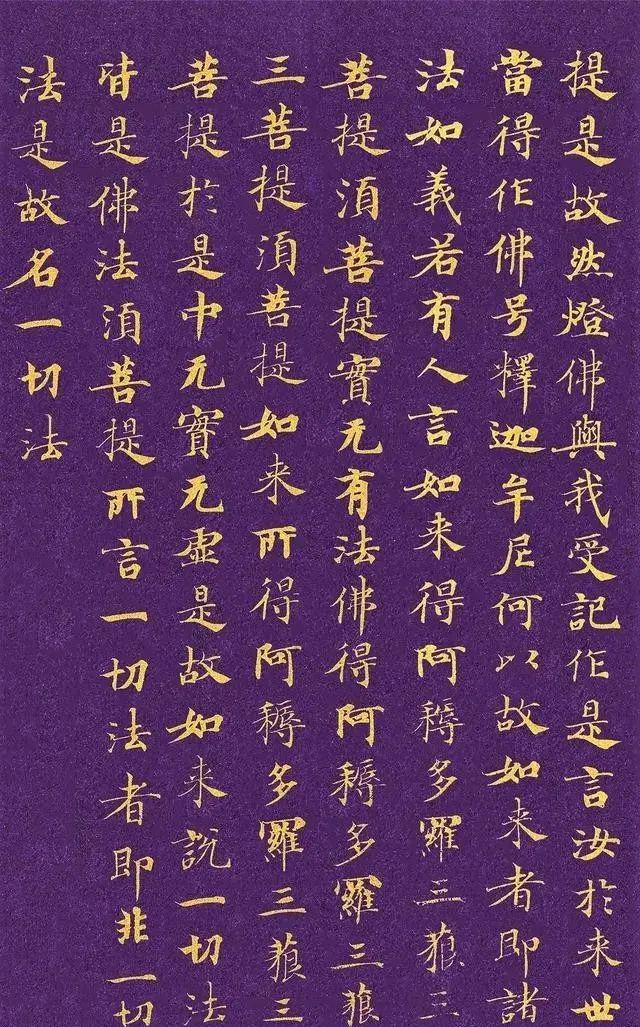 提是故然燈佛與我受記作是言汝於来世
當得作佛号釋迦牟尼何以故如来者即諸
法如義若有人言如来得阿耨多羅三藐三
菩提湏菩提實无有法佛得阿耨多羅三藐
三菩提湏菩提如来所得阿耨多羅三藐三
菩提於是中无實无虛是故如来說一切法
皆是佛法湏菩提所言一切法者即非一切
法是故名一切法